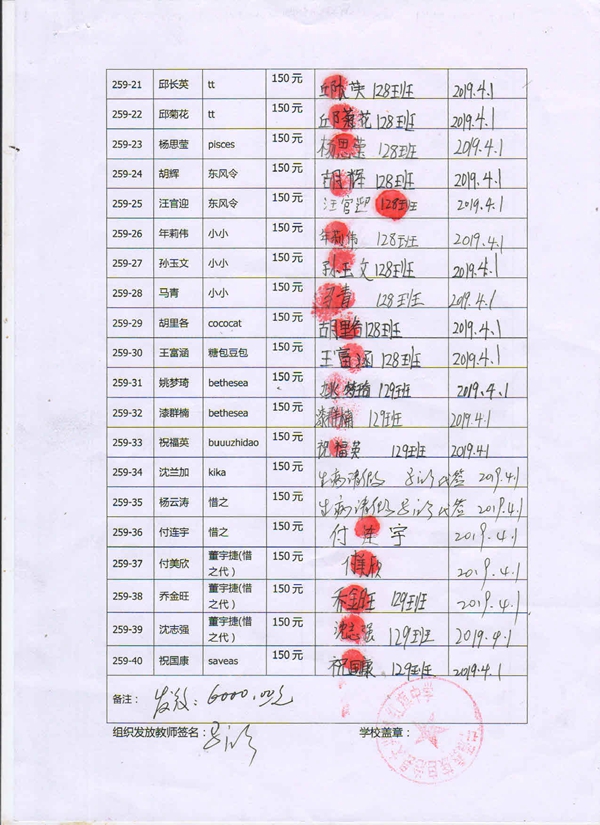 259-21 邱长英 tt 150元 邱长英 128班 2019.4.1
259-22 邱菊花 tt 150元 邱菊花 128班 2019.4.1
259-23 杨思莹 pisces 150元 杨思莹 128班 2019.4.1
259-24 胡辉 东风令 150元 胡辉 128班 2019.4.1
259-25 汪官迎 东风令 150元 汪官迎 128班 2019.4.1
259-26 年莉伟 小小 150元 年莉伟 128班 2019.4.1
259-27 孙玉文 小小 150元 孙玉文 128班 2019.4.1
259-28 马青 小小 150元 马青 128班 2019.4.1
259-29 胡里各 cococat 150元 胡里各 128班 2019.4.1
259-30 王富涵 糖包豆包 150元 王富涵 128班 2019.4.1
259-31 姚梦琦 bethesea 150元 姚梦琦 129班 2019.4.1
259-32 漆群楠 bethesea 150元 漆群楠 129班 2019.4.1
259-33 祝福英 buuuzhidao 150元 祝福英 129班 2019.4.1
259-34 沈兰加 kika 150元 生病请假 代签 2019.4.1
259-35 杨云涛 惜之 150元 生病请假 代签 2019.4.1
259-36 付连宇 惜之 150元 付连宇 2019.4.1
259-37 付美欣 董宇捷(惜之代) 150元 付美欣 2019.4.1
259-38 乔金旺 董宇捷(惜之代) 150元 乔金旺 129班 2019.4.1
259-39 沈志强 董宇捷(惜之代) 150元 沈志强 129班 2019.4.1
259-40 祝国康 saveas 150元 祝国康 129班 2019.4.1
备注： 发放：6000.00元
组织发放教师签名： 学校盖章：